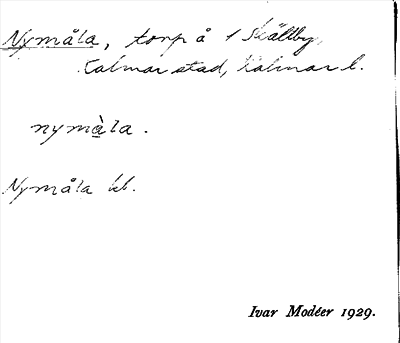 Nymåla, torp å 1 Skällby,
Kalmar stad, Kalmar l.
nymàla.
Nymåla kl.
Ivar Modéer 1929.